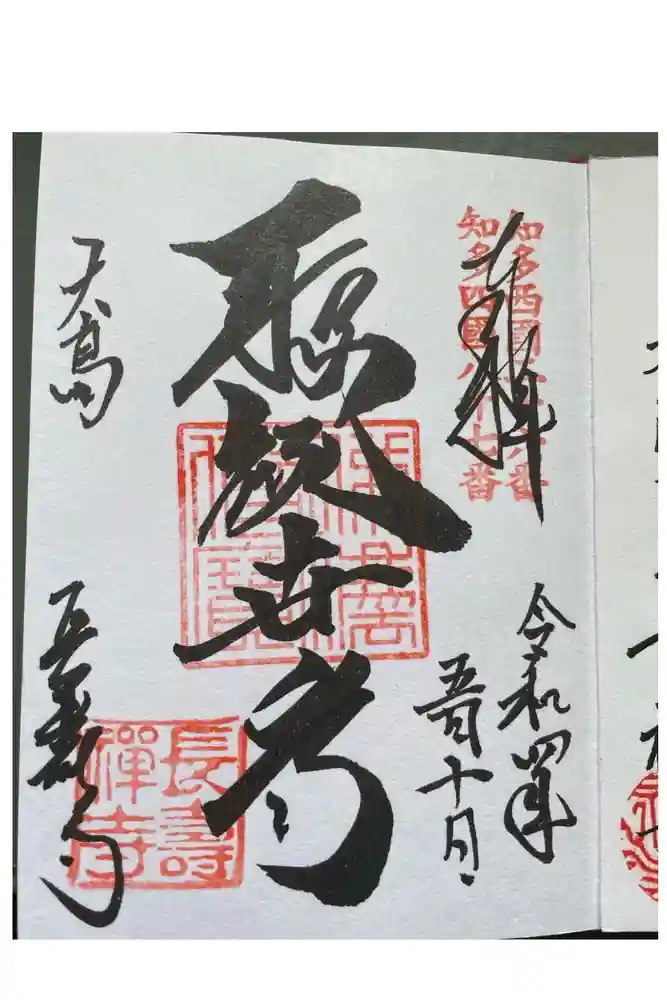 奉拝
知多西國
六番
知多四國八十七番
令和四年
五月十日
聖観世音
大高
長壽寺
長壽
禪寺